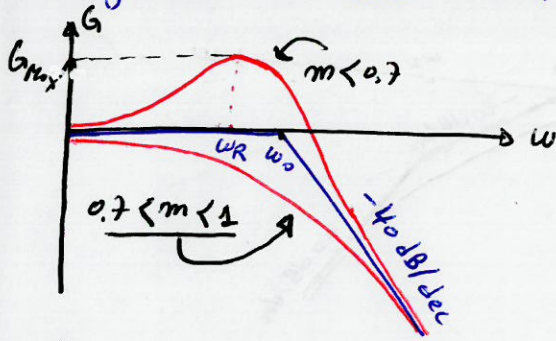 G
G Max
m < 0,7
ωR
ω0
ω
0.7 < m < 1
-40 dB/dec